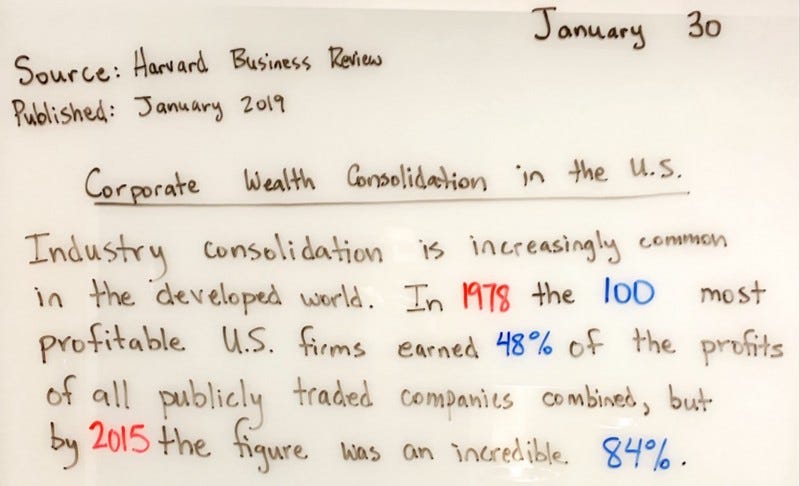 January 30
Source: Harvard Business Review
Published: January 2019
Corporate Wealth Consolidation in the U.S.
Industry consolidation is increasingly common
in the developed world. In 1978 the 100 most
profitable U.S. firms earned 48% of the profits
of all publicly traded companies combined, but
by 2015 the figure was an incredible 84%.